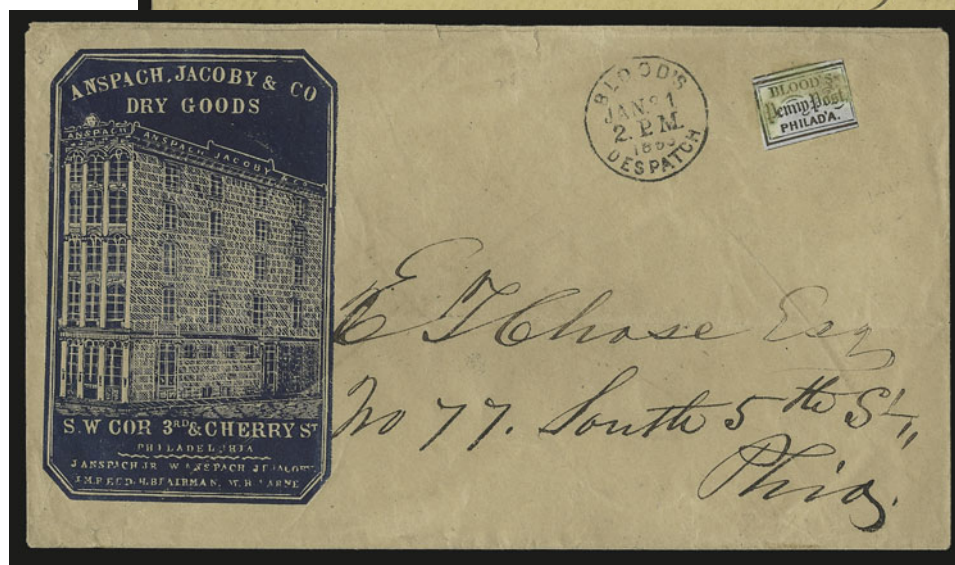 ANSPACH, JACOBY & CO
DRY GOODS
ANSPACH
ANSPACH JACOBY & CO
S. W COR 3RD & CHERRY ST
PHILADELPHIA
J ANSPACH JR W ANSPACH J F JACOBY
BLOOD'S
JAN 21
2. P.M.
DESPATCH
BLOOD'S
Penny Post
PHILAD'A.
E T Chase Esq
No 77. South 5th St,
Phia.